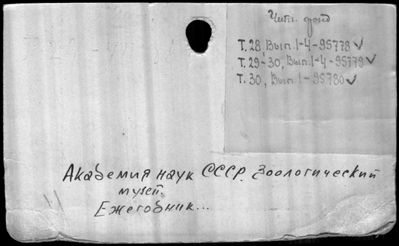 Чит. фонд
Т. 28, Вып. 1-4-95778 ✓
Т. 29-30, Вып. 1-4-95779 ✓
Т. 30, Вып. 1-95780 ✓
Академия наук СССР. Зоологический
музей.
Ежегодник...